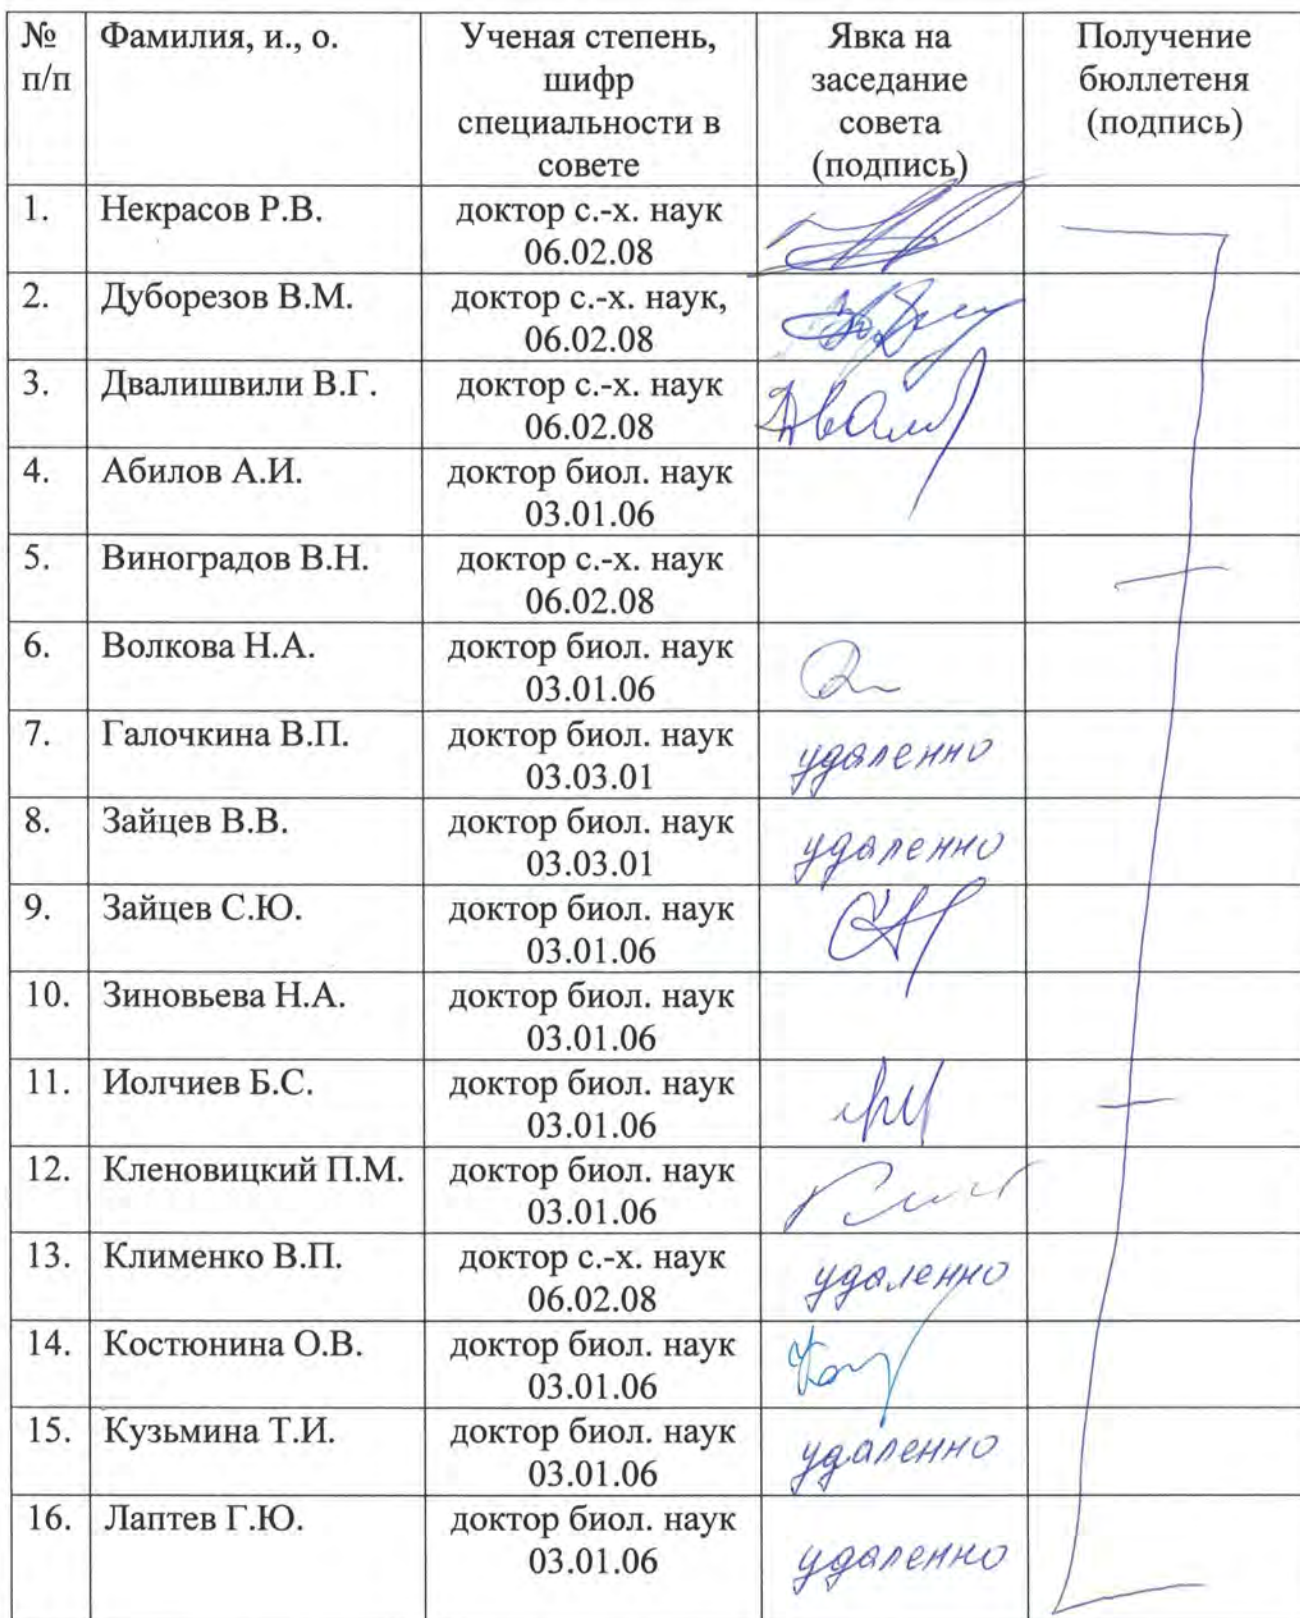 № п/п Фамилия, и., о. Ученая степень, шифр специальности в совете Явка на заседание совета (подпись) Получение бюллетеня (подпись)
1. Некрасов Р.В. доктор с.-х. наук 06.02.08
2. Дуборезов В.М. доктор с.-х. наук, 06.02.08
3. Двалишвили В.Г. доктор с.-х. наук 06.02.08
4. Абилов А.И. доктор биол. наук 03.01.06
5. Виноградов В.Н. доктор с.-х. наук 06.02.08
6. Волкова Н.А. доктор биол. наук 03.01.06
7. Галочкина В.П. доктор биол. наук 03.03.01 удаленно
8. Зайцев В.В. доктор биол. наук 03.03.01 удаленно
9. Зайцев С.Ю. доктор биол. наук 03.01.06
10. Зиновьева Н.А. доктор биол. наук 03.01.06
11. Иолчиев Б.С. доктор биол. наук 03.01.06
12. Кленовицкий П.М. доктор биол. наук 03.01.06
13. Клименко В.П. доктор с.-х. наук 06.02.08 удаленно
14. Костюнина О.В. доктор биол. наук 03.01.06
15. Кузьмина Т.И. доктор биол. наук 03.01.06 удаленно
16. Лаптев Г.Ю. доктор биол. наук 03.01.06 удаленно